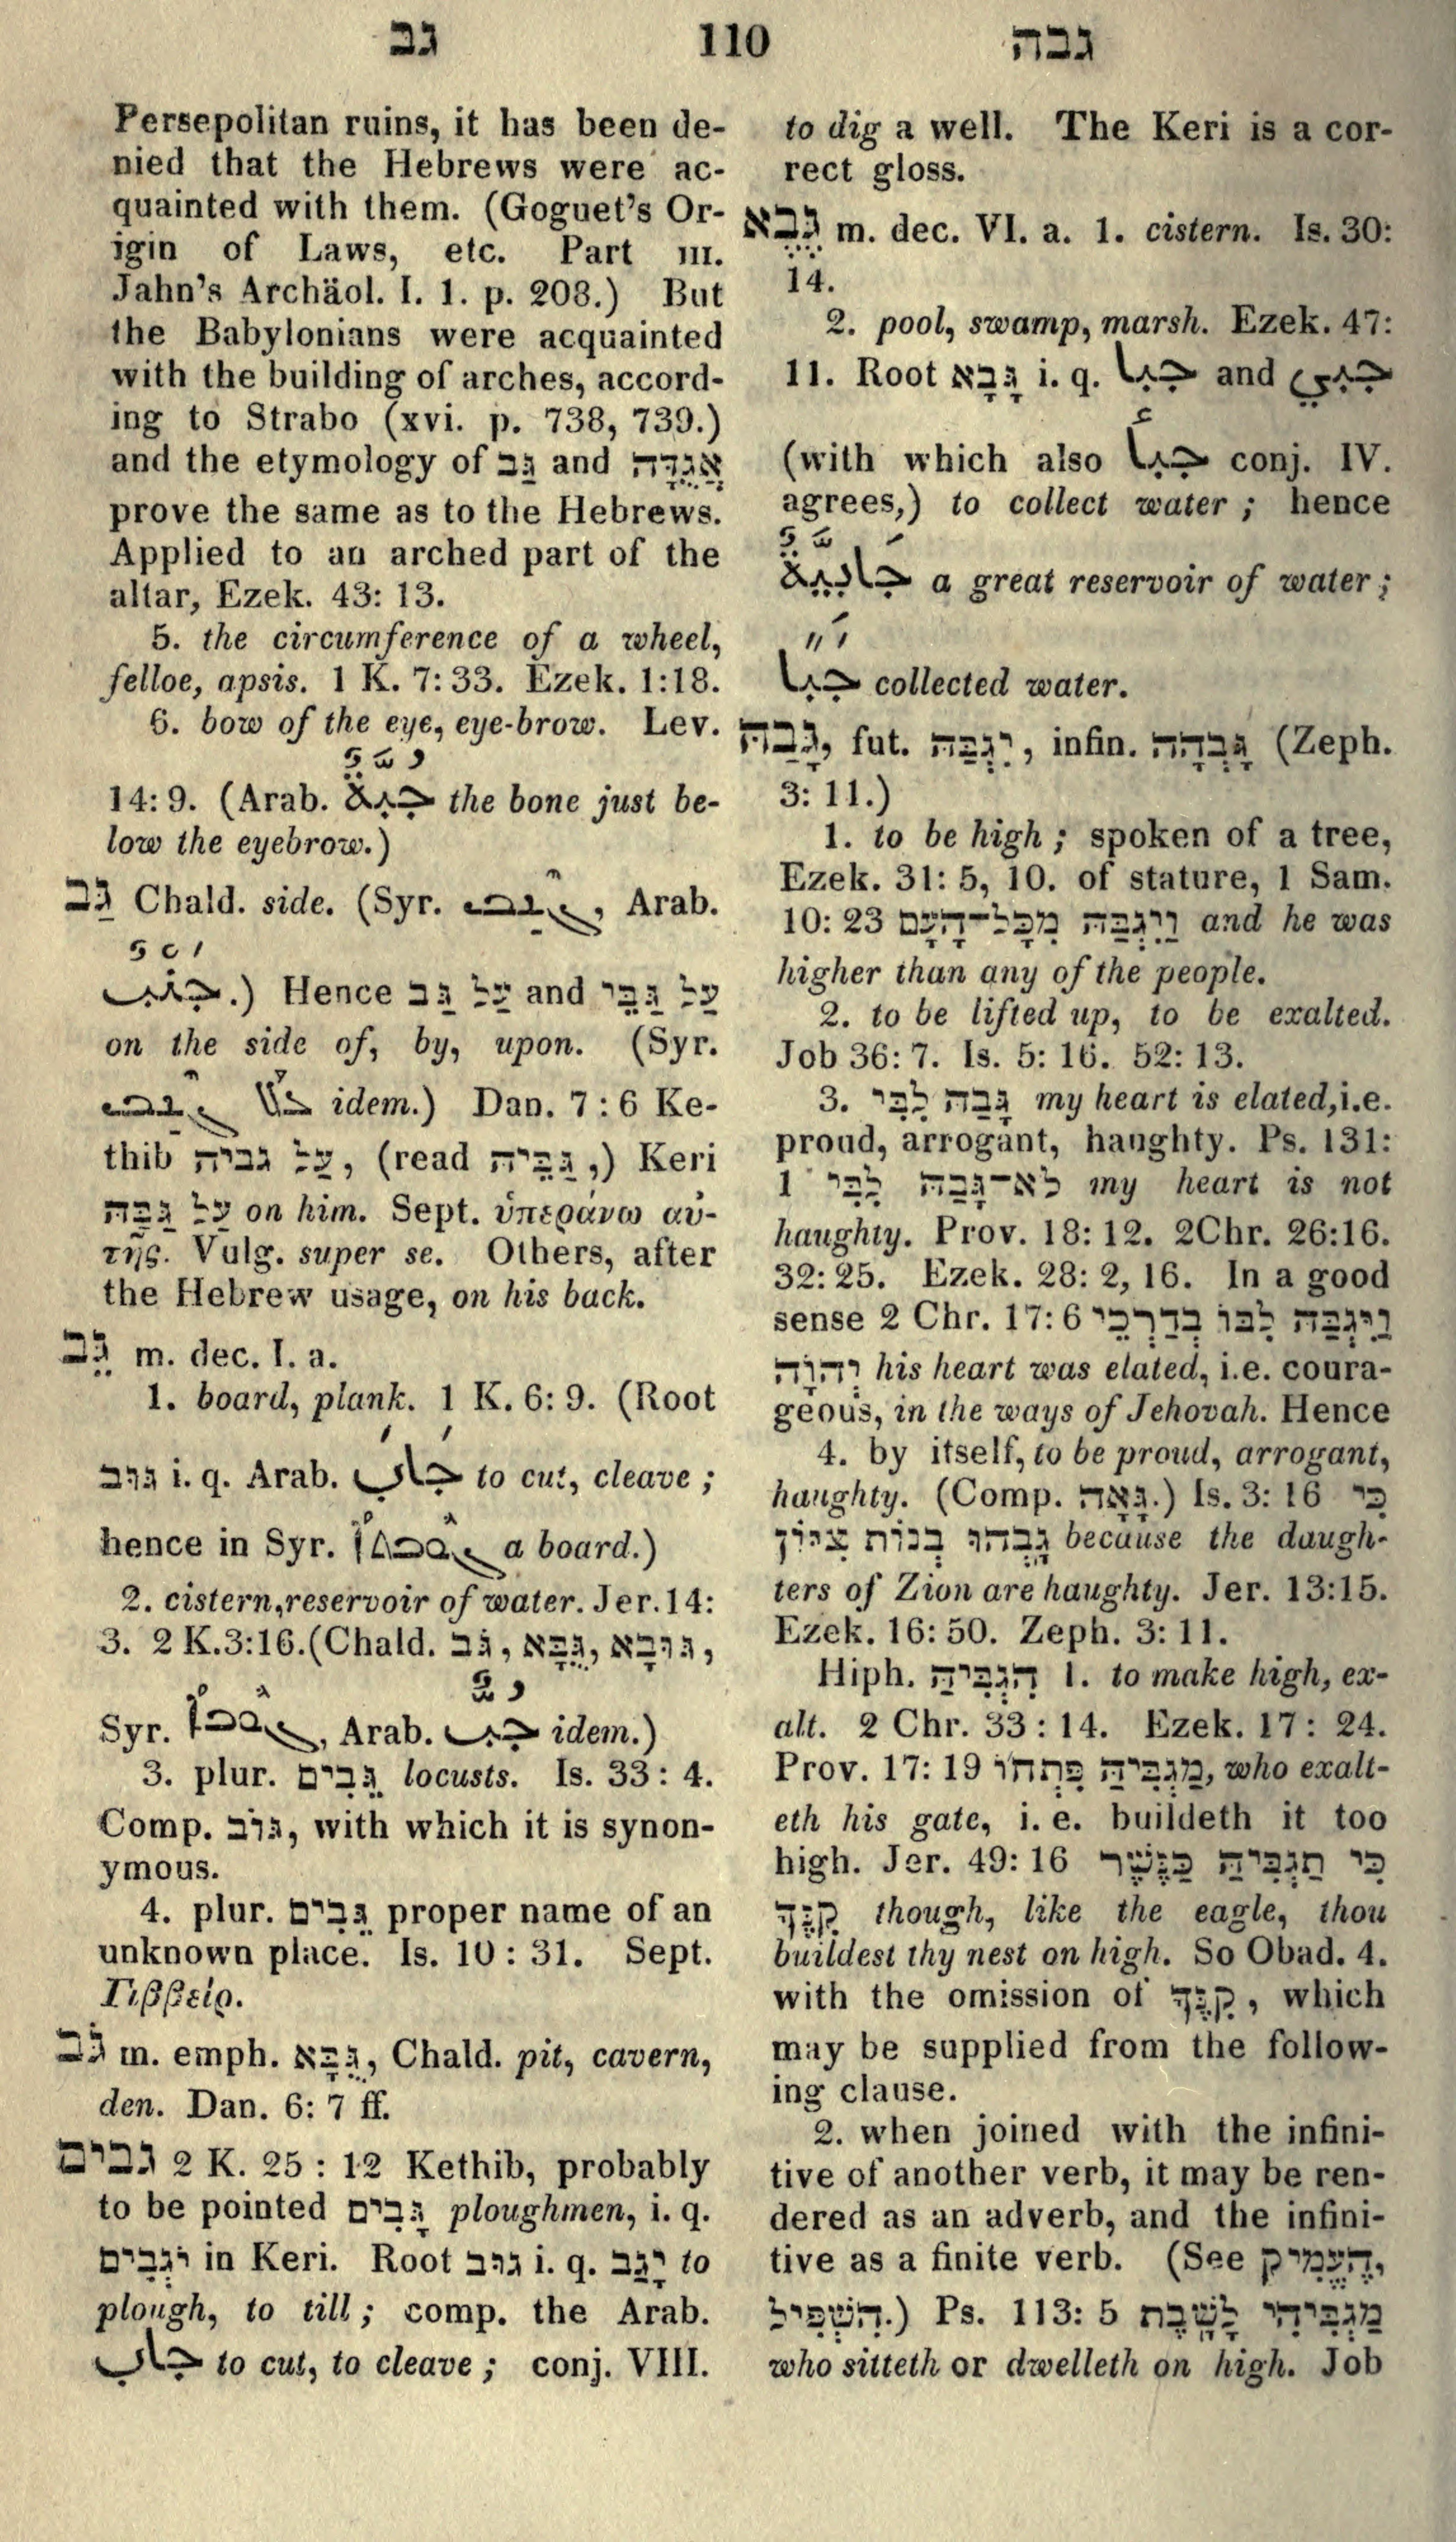 גב 110 גבה
Persepolitan ruins, it has been de-
nied that the Hebrews were ac-
quainted with them. (Goguet's Or-
igin of Laws, etc. Part III.
Jahn's Archäol. I. 1. p. 208.) But
the Babylonians were acquainted
with the building of arches, accord-
ing to Strabo (xvi. p. 738, 739.)
and the etymology of גַּב and אֲגֻדָּה
prove the same as to the Hebrews.
Applied to an arched part of the
altar, Ezek. 43: 13.
5. the circumference of a wheel,
felloe, apsis. 1 K. 7: 33. Ezek. 1:18.
6. bow of the eye, eye-brow. Lev.
14: 9. (Arab. جُبَّةٌ the bone just be-
low the eyebrow.)
גַּב Chald. side. (Syr. Arab.
جَنْبٌ.) Hence עַל גַּב and עַל גַּבֵּי
on the side of, by, upon. (Syr.
idem.) Dan. 7 : 6 Ke-
thib עַל גביה, (read גַּבֵּיהּ,) Keri
עַל גַּבַּהּ on him. Sept. ὑπεράνω αὐ-
τῆς. Vulg. super se. Others, after
the Hebrew usage, on his back.
גֵּב m. dec. I. a.
1. board, plank. 1 K. 6: 9. (Root
גּוּב i. q. Arab. جَابَ to cut, cleave ;
hence in Syr. a board.)
2. cistern, reservoir of water. Jer. 14:
3. 2 K. 3:16. (Chald. גֹּב, גֻּבָּא, גּוּבָא,
Syr. Arab. جُبٌّ idem.)
3. plur. גֵּבִים locusts. Is. 33 : 4.
Comp. גּוֹב, with which it is synon-
ymous.
4. plur. גֵּבִים proper name of an
unknown place. Is. 10 : 31. Sept.
Γιββείρ.
גֹּב m. emph. גֻּבָּא, Chald. pit, cavern,
den. Dan. 6: 7 ff.
גבים 2 K. 25 : 12 Kethib, probably
to be pointed גָּבִים ploughmen, i. q.
יֹגְבִים in Keri. Root גּוּב i. q. יָגַב to
plough, to till ; comp. the Arab.
جَابَ to cut, to cleave ; conj. VIII.
to dig a well. The Keri is a cor-
rect gloss.
גֶּבֶא m. dec. VI. a. 1. cistern. Is. 30:
14.
2. pool, swamp, marsh. Ezek. 47:
11. Root גָּבָא i. q. جبا and جبي
(with which also جبأ conj. IV.
agrees,) to collect water ; hence
جَابِيَّةٌ a great reservoir of water ;
جبا collected water.
גָּבַהּ, fut. יִגְבַּהּ, infin. גָּבְהָה (Zeph.
3: 11.)
1. to be high ; spoken of a tree,
Ezek. 31: 5, 10. of stature, 1 Sam.
10: 23 וַיִּגְבַּהּ מִכָּל־הָעָם and he was
higher than any of the people.
2. to be lifted up, to be exalted.
Job 36: 7. Is. 5: 16. 52: 13.
3. גָּבַהּ לִבִּי my heart is elated, i.e.
proud, arrogant, haughty. Ps. 131:
1 לֹא־גָבַהּ לִבִּי my heart is not
haughty. Prov. 18: 12. 2Chr. 26:16.
32: 25. Ezek. 28: 2, 16. In a good
sense 2 Chr. 17: 6 וַיִּגְבַּהּ לִבּוֹ בְּדַרְכֵי
יְהוָֹה his heart was elated, i.e. coura-
geous, in the ways of Jehovah. Hence
4. by itself, to be proud, arrogant,
haughty. (Comp. גָּאָה.) Is. 3: 16 כִּי
גָבְהוּ בְּנוֹת צִיּוֹן because the daugh-
ters of Zion are haughty. Jer. 13:15.
Ezek. 16: 50. Zeph. 3: 11.
Hiph. הִגְבִּיהַּ 1. to make high, ex-
alt. 2 Chr. 33 : 14. Ezek. 17 : 24.
Prov. 17: 19 מַגְבִּיהַּ פִּתְחוֹ, who exalt-
eth his gate, i. e. buildeth it too
high. Jer. 49: 16 כִּי תַגְבִּיהַּ כַּנֶּשֶׁר
קִנֶּךָ though, like the eagle, thou
buildest thy nest on high. So Obad. 4.
with the omission of קִנֶּךָ, which
may be supplied from the follow-
ing clause.
2. when joined with the infini-
tive of another verb, it may be ren-
dered as an adverb, and the infini-
tive as a finite verb. (See הֶעֱמִיק,
הִשְׁפִּיל.) Ps. 113: 5 מַגְבִּיהִי לָשָׁבֶת
who sitteth or dwelleth on high. Job